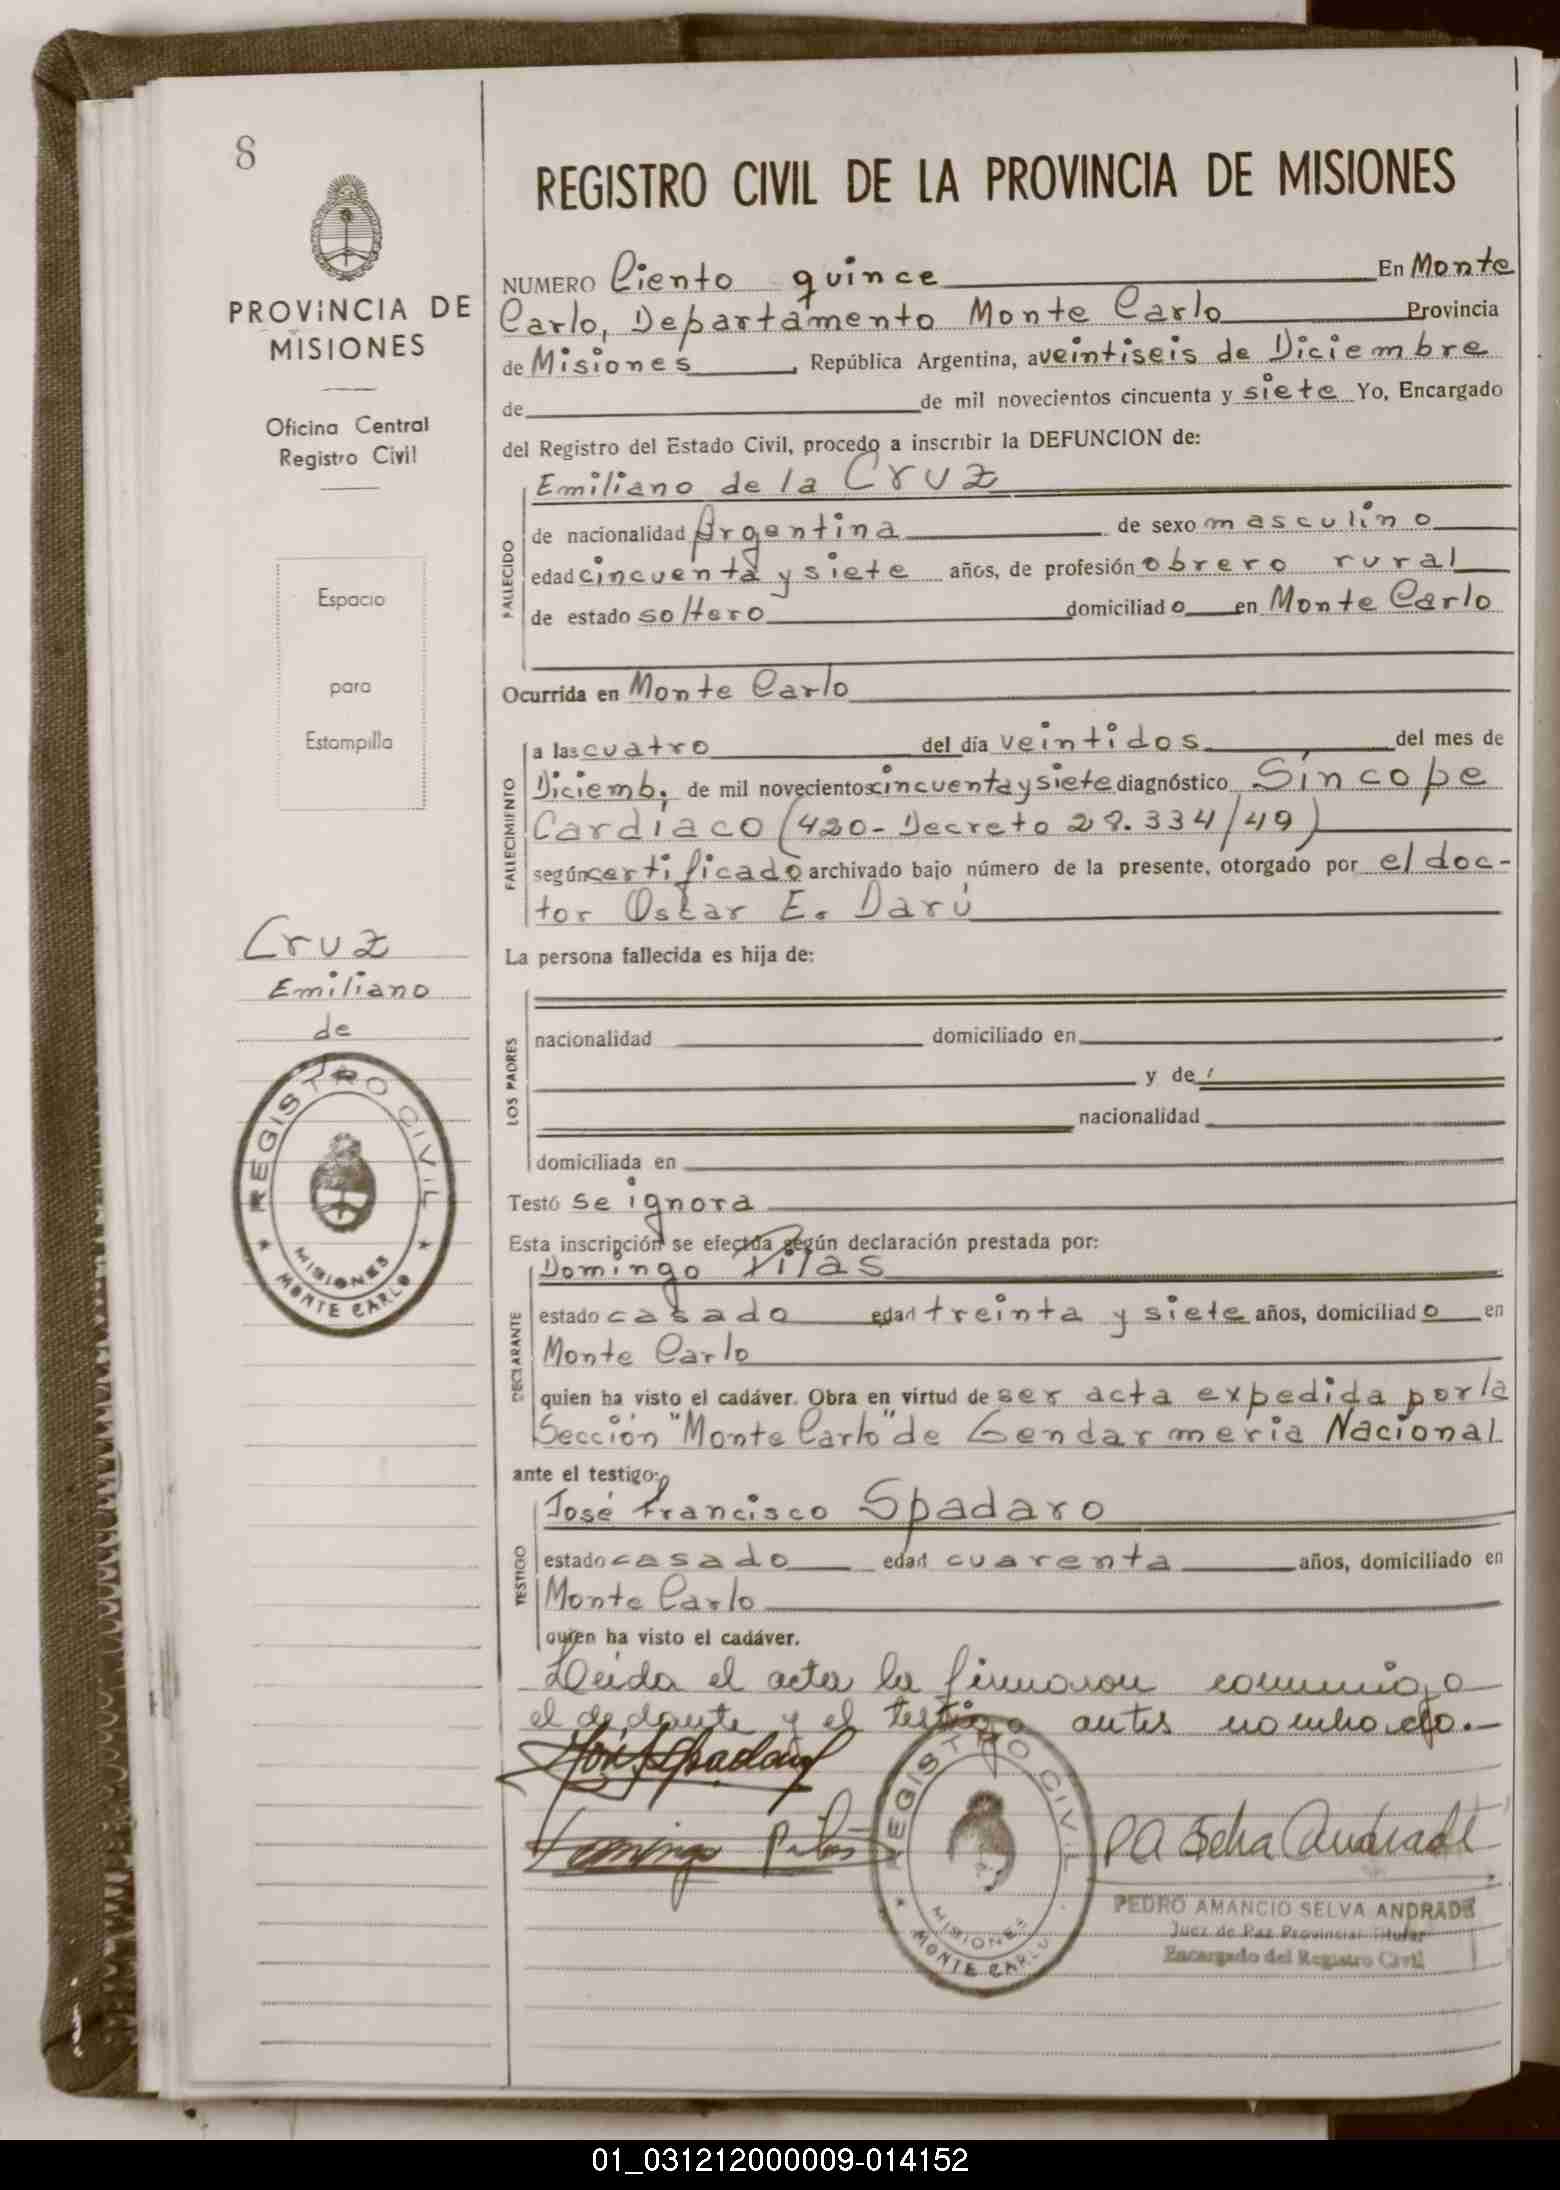 8
PROVINCIA DE
MISIONES
Oficina Central
Registro Civil
Espacio
para
Estampilla
Cruz
Emiliano
de
REGISTRO CIVIL
MISIONES
MONTE CARLO
REGISTRO CIVIL DE LA PROVINCIA DE MISIONES
NUMERO Ciento quince En Monte
Carlo, Departamento Monte Carlo Provincia
de Misiones, República Argentina, a veintiseis de Diciembre
de de mil novecientos cincuenta y siete Yo, Encargado
del Registro del Estado Civil, procedo a inscribir la DEFUNCION de:
Emiliano de la Cruz
FALLECIDO
de nacionalidad Argentina de sexo masculino
edad cincuenta y siete años, de profesión obrero rural
de estado soltero domiciliado en Monte Carlo
Ocurrida en Monte Carlo
FALLECIMIENTO
a las cuatro del día veintidos del mes de
Diciemb. de mil novecientos cincuenta y siete diagnóstico Síncope
Cardíaco (420-Decreto 28.334/49)
según certificado archivado bajo número de la presente, otorgado por el doc-
tor Oscar E. Darú
La persona fallecida es hija de:
LOS PADRES
nacionalidad domiciliado en
y de
nacionalidad
domiciliada en
Testó se ignora
Esta inscripción se efectúa según declaración prestada por:
Domingo Pilas
DECLARANTE
estado casado edad treinta y siete años, domiciliado en
Monte Carlo
quien ha visto el cadáver. Obra en virtud de ser acta expedida por la
Sección "Monte Carlo" de Gendarmeria Nacional
ante el testigo:
José Francisco Spadaro
TESTIGO
estado casado edad cuarenta años, domiciliado en
Monte Carlo
quien ha visto el cadáver.
Leída el acta la firmaron conmigo
el declarante y el testigo antes nombrado.-
Domingo Pilas
REGISTRO CIVIL
MISIONES
MONTE CARLO
PA Selva Andrade
PEDRO AMANCIO SELVA ANDRADE
Juez de Paz Provincial Titular
Encargado del Registro Civil
01_031212000009-014152